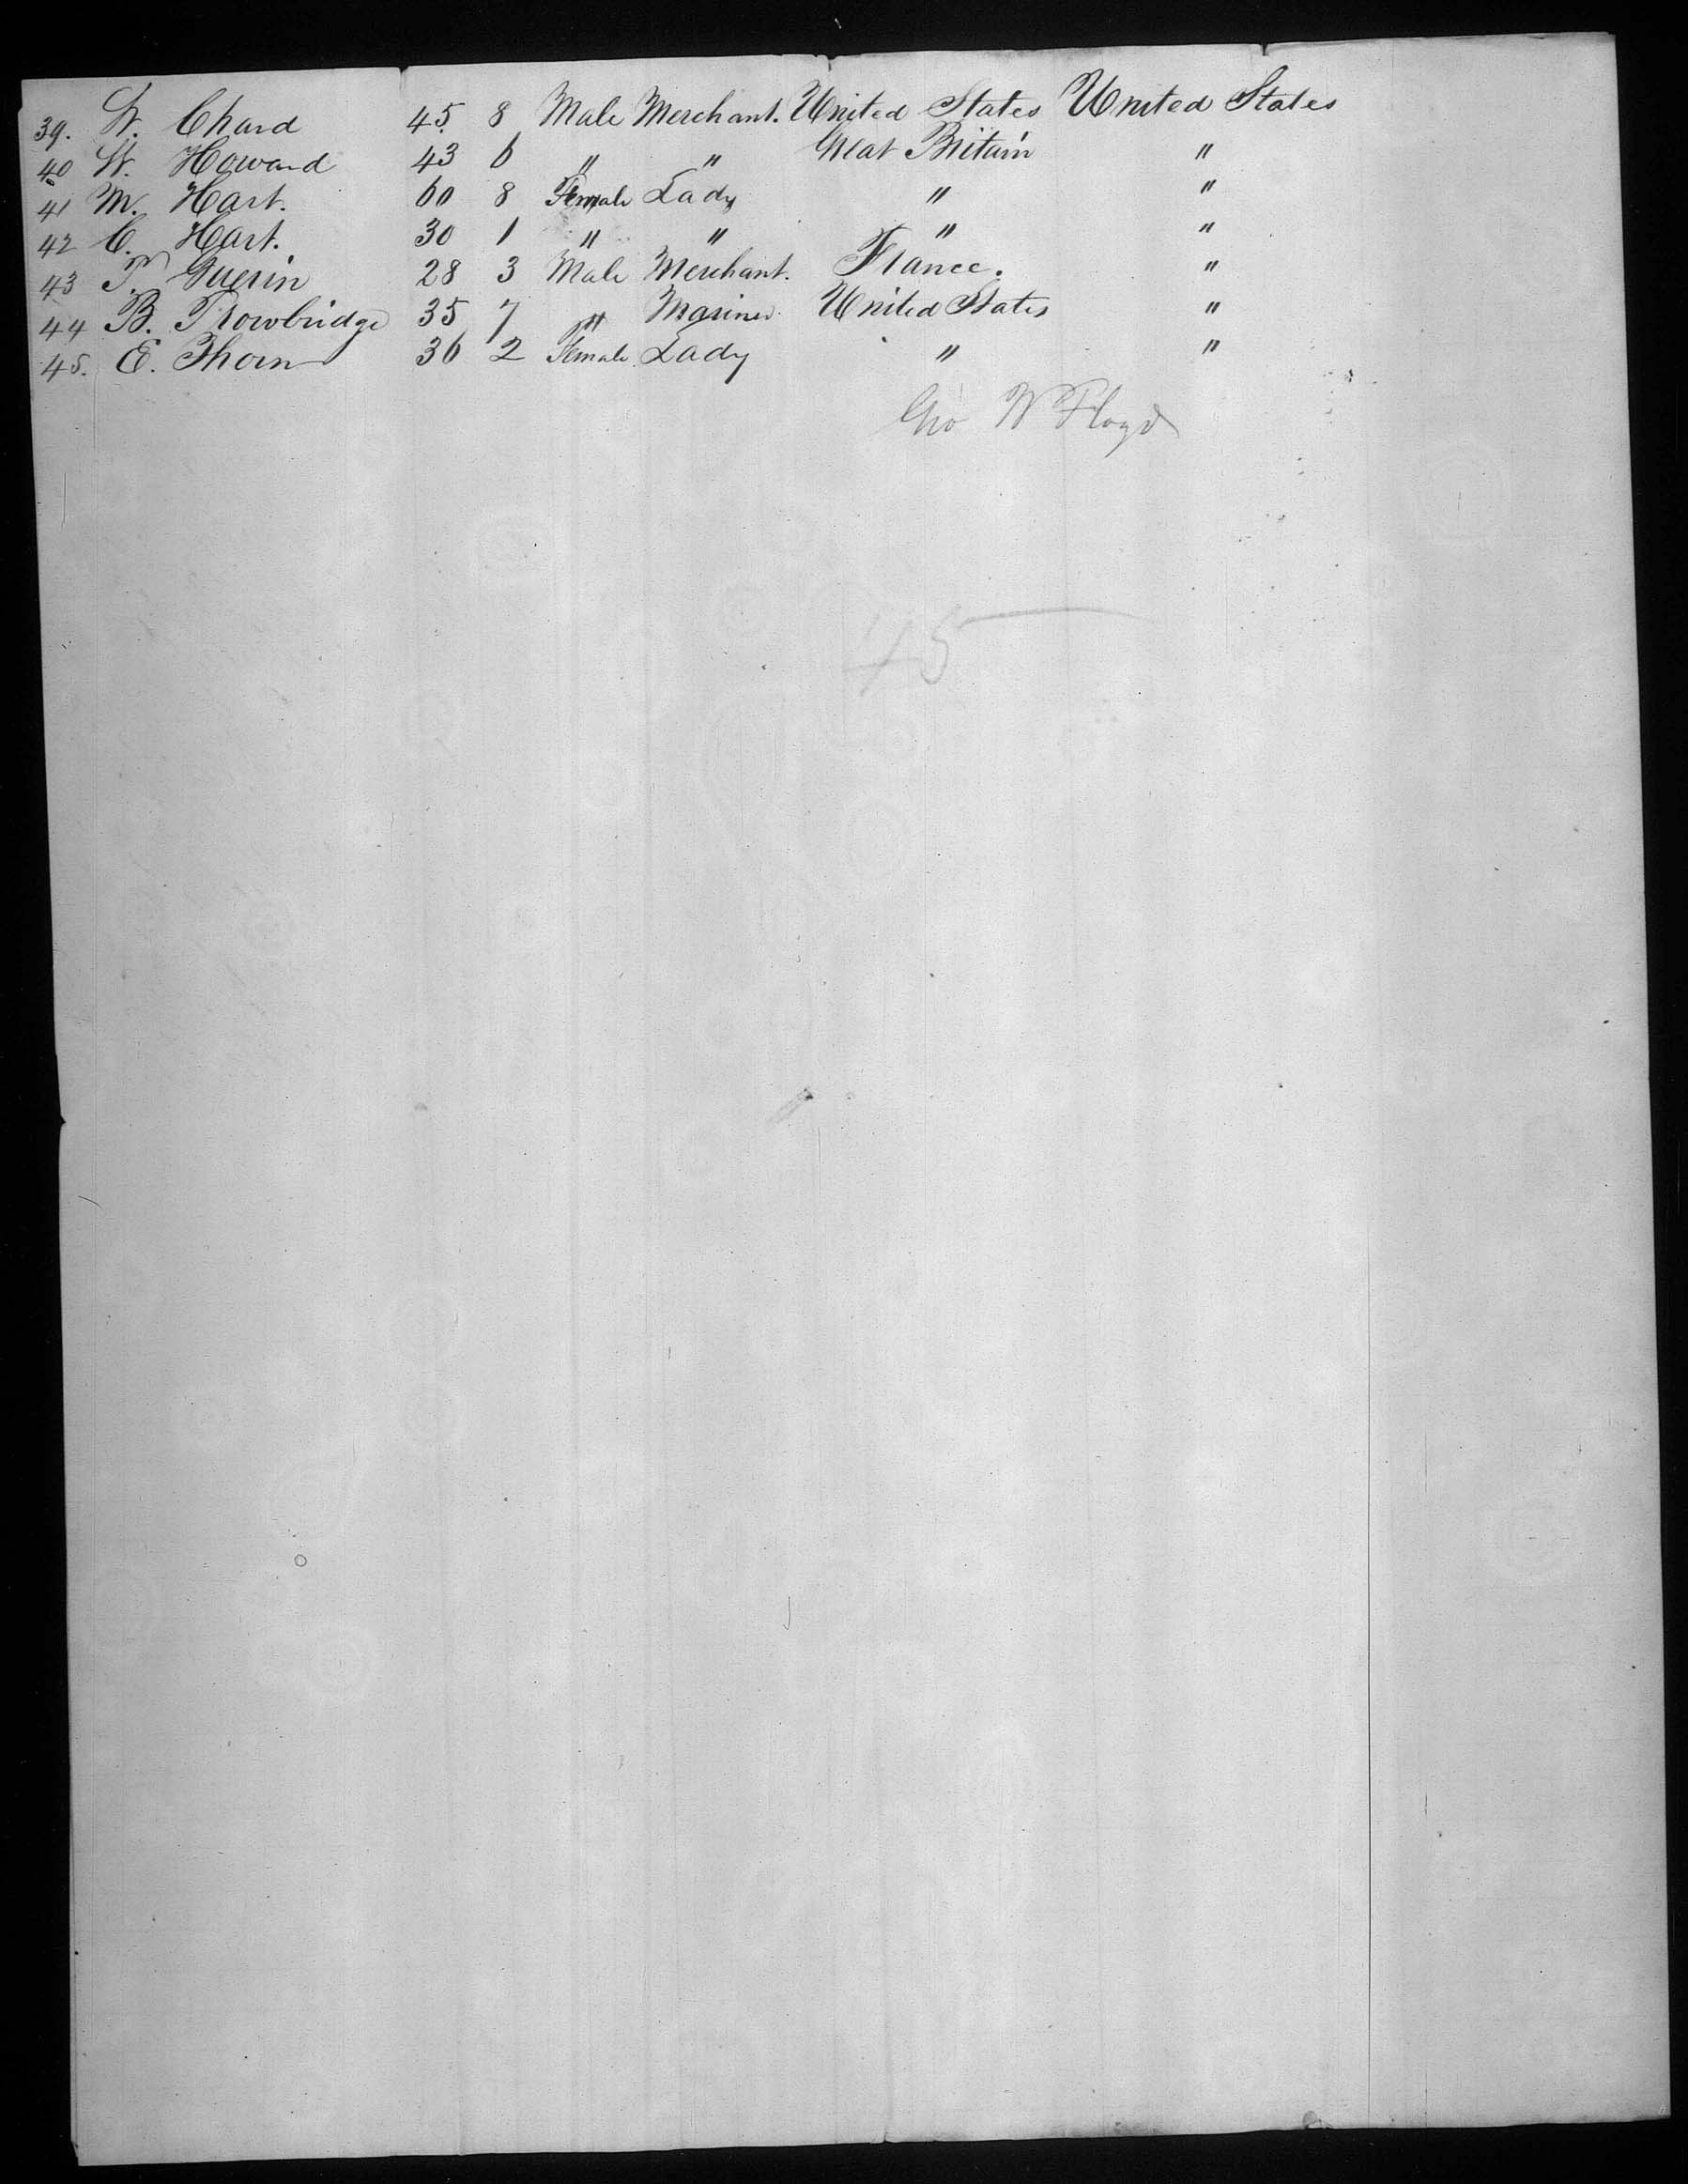 39. W. Chard 45 8 Male Merchant. United States United States
40 W. Howard 43 6 " " Great Britain "
41 M. Hart. 60 8 Female Lady " "
42 C. Hart. 30 1 " " " "
43 T. Guerin 28 3 Male Merchant. France. "
44 B. Trowbridge 35 7 " Mariner United States "
45. E. Thorn 36 2 Female. Lady " "
Geo W Floyd
45